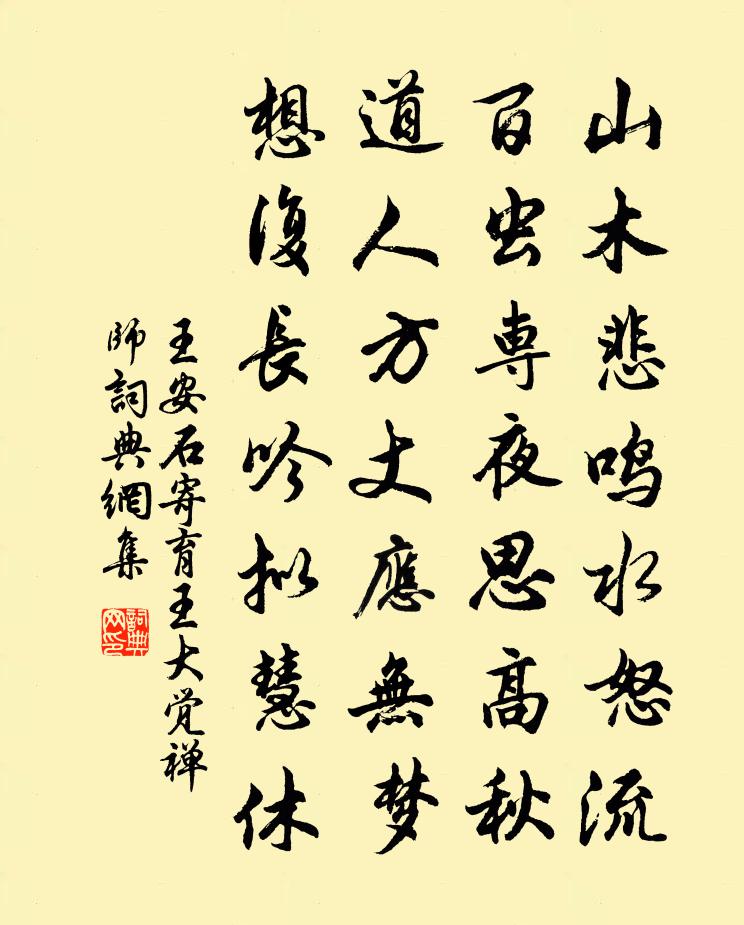 山木悲鸣水怒流
百虫専夜思高秋
道人方丈應無梦
想復長吟拟慧休
王安石寄育王大觉禅
師詞典網集
詞典
网印